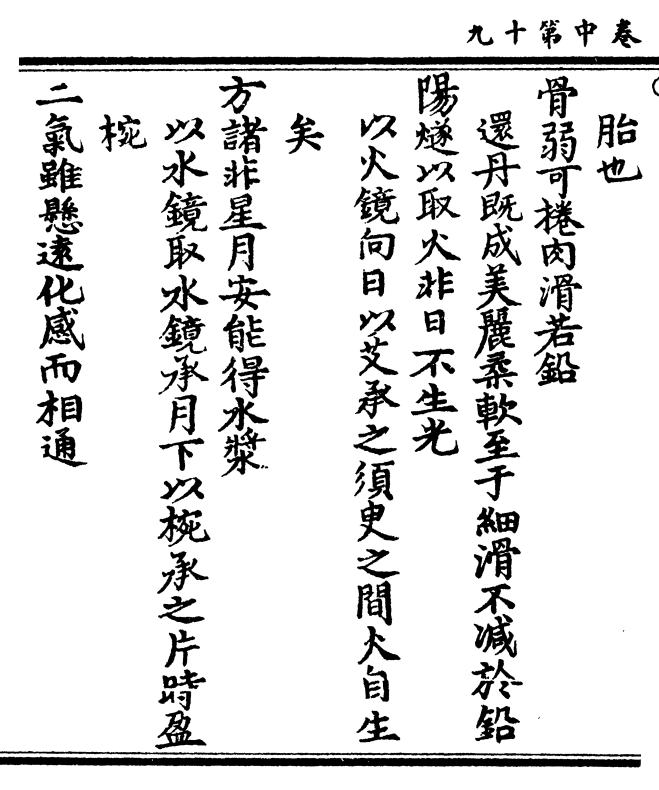 卷中第十九
胎也
骨弱可捲肉滑若鉛
還丹既成美麗柔軟至于細滑不减於鉛
陽燧以取火非日不生光
以火鏡向日以艾承之須臾之間火自生
矣
方諸非星月安能得水漿
以水鏡取水鏡承月下以椀承之片時盈
椀
二氣雖懸遠化感而相通